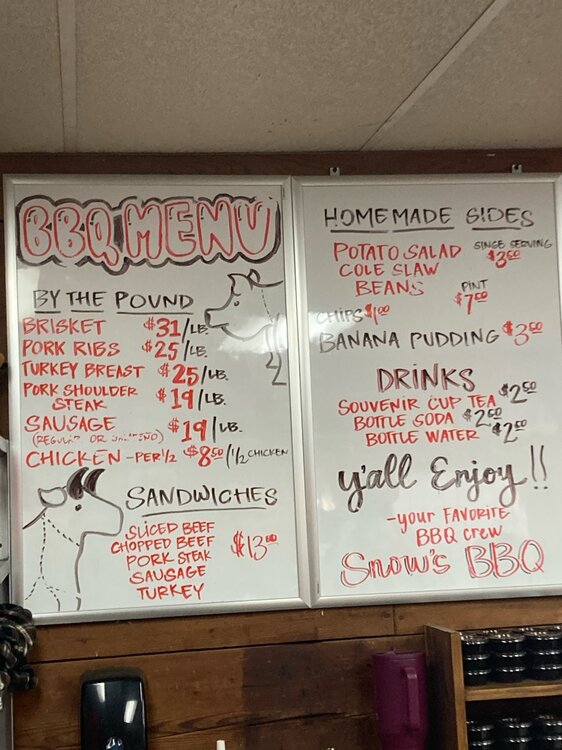 BBQ MENU
BY THE POUND
BRISKET $31/LB.
PORK RIBS $25/LB.
TURKEY BREAST $25/LB.
PORK SHOULDER STEAK $19/LB.
SAUSAGE $19/LB.
(REGULAR OR JALAPENO)
CHICKEN - PER 1/2 $8.50/1/2 CHICKEN
SANDWICHES
SLICED BEEF
CHOPPED BEEF
PORK STEAK
SAUSAGE
TURKEY
$13.00
HOMEMADE SIDES
POTATO SALAD
COLE SLAW
BEANS
SINGE SERVING
$3.00
PINT
$7.00
CHIPS $1.00
BANANA PUDDING $3.50
DRINKS
SOUVENIR CUP TEA $2.50
BOTTLE SODA $2.50
BOTTLE WATER $2.50
y'all Enjoy!!
-your FAVORITE
BBQ crew
Snow's BBQ